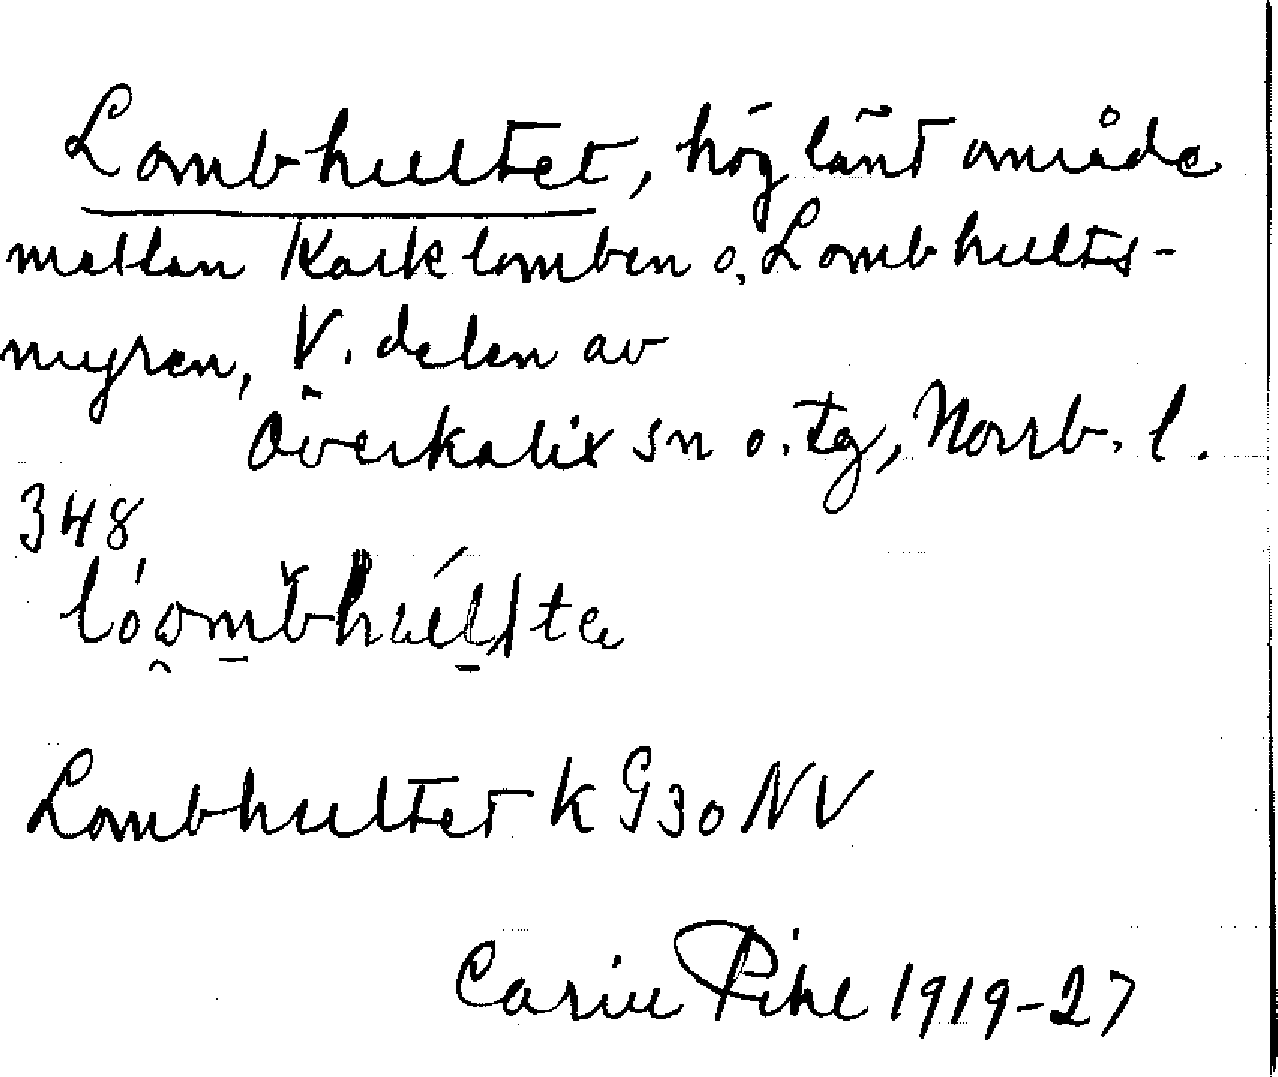 Lombhultet, höglänt område
mellan Karklomben o. Lombhults-
myren, V. delen av
Överkalix sn o. tg, Norrb. l.
348
Lombhultet k G30 NV
Carin Pihl 1919-27